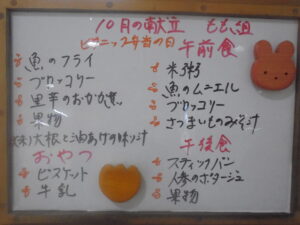 10月の献立 もも組
ピクニック弁当の日
魚のフライ
ブロッコリー
里芋のおかか煮
果物
大根と油あげの味噌汁
おやつ
ビスケット
牛乳
午前食
米粥
魚のムニエル
ブロッコリー
さつまいものみそ汁
午後食
スティックパン
人参のポタージュ
果物